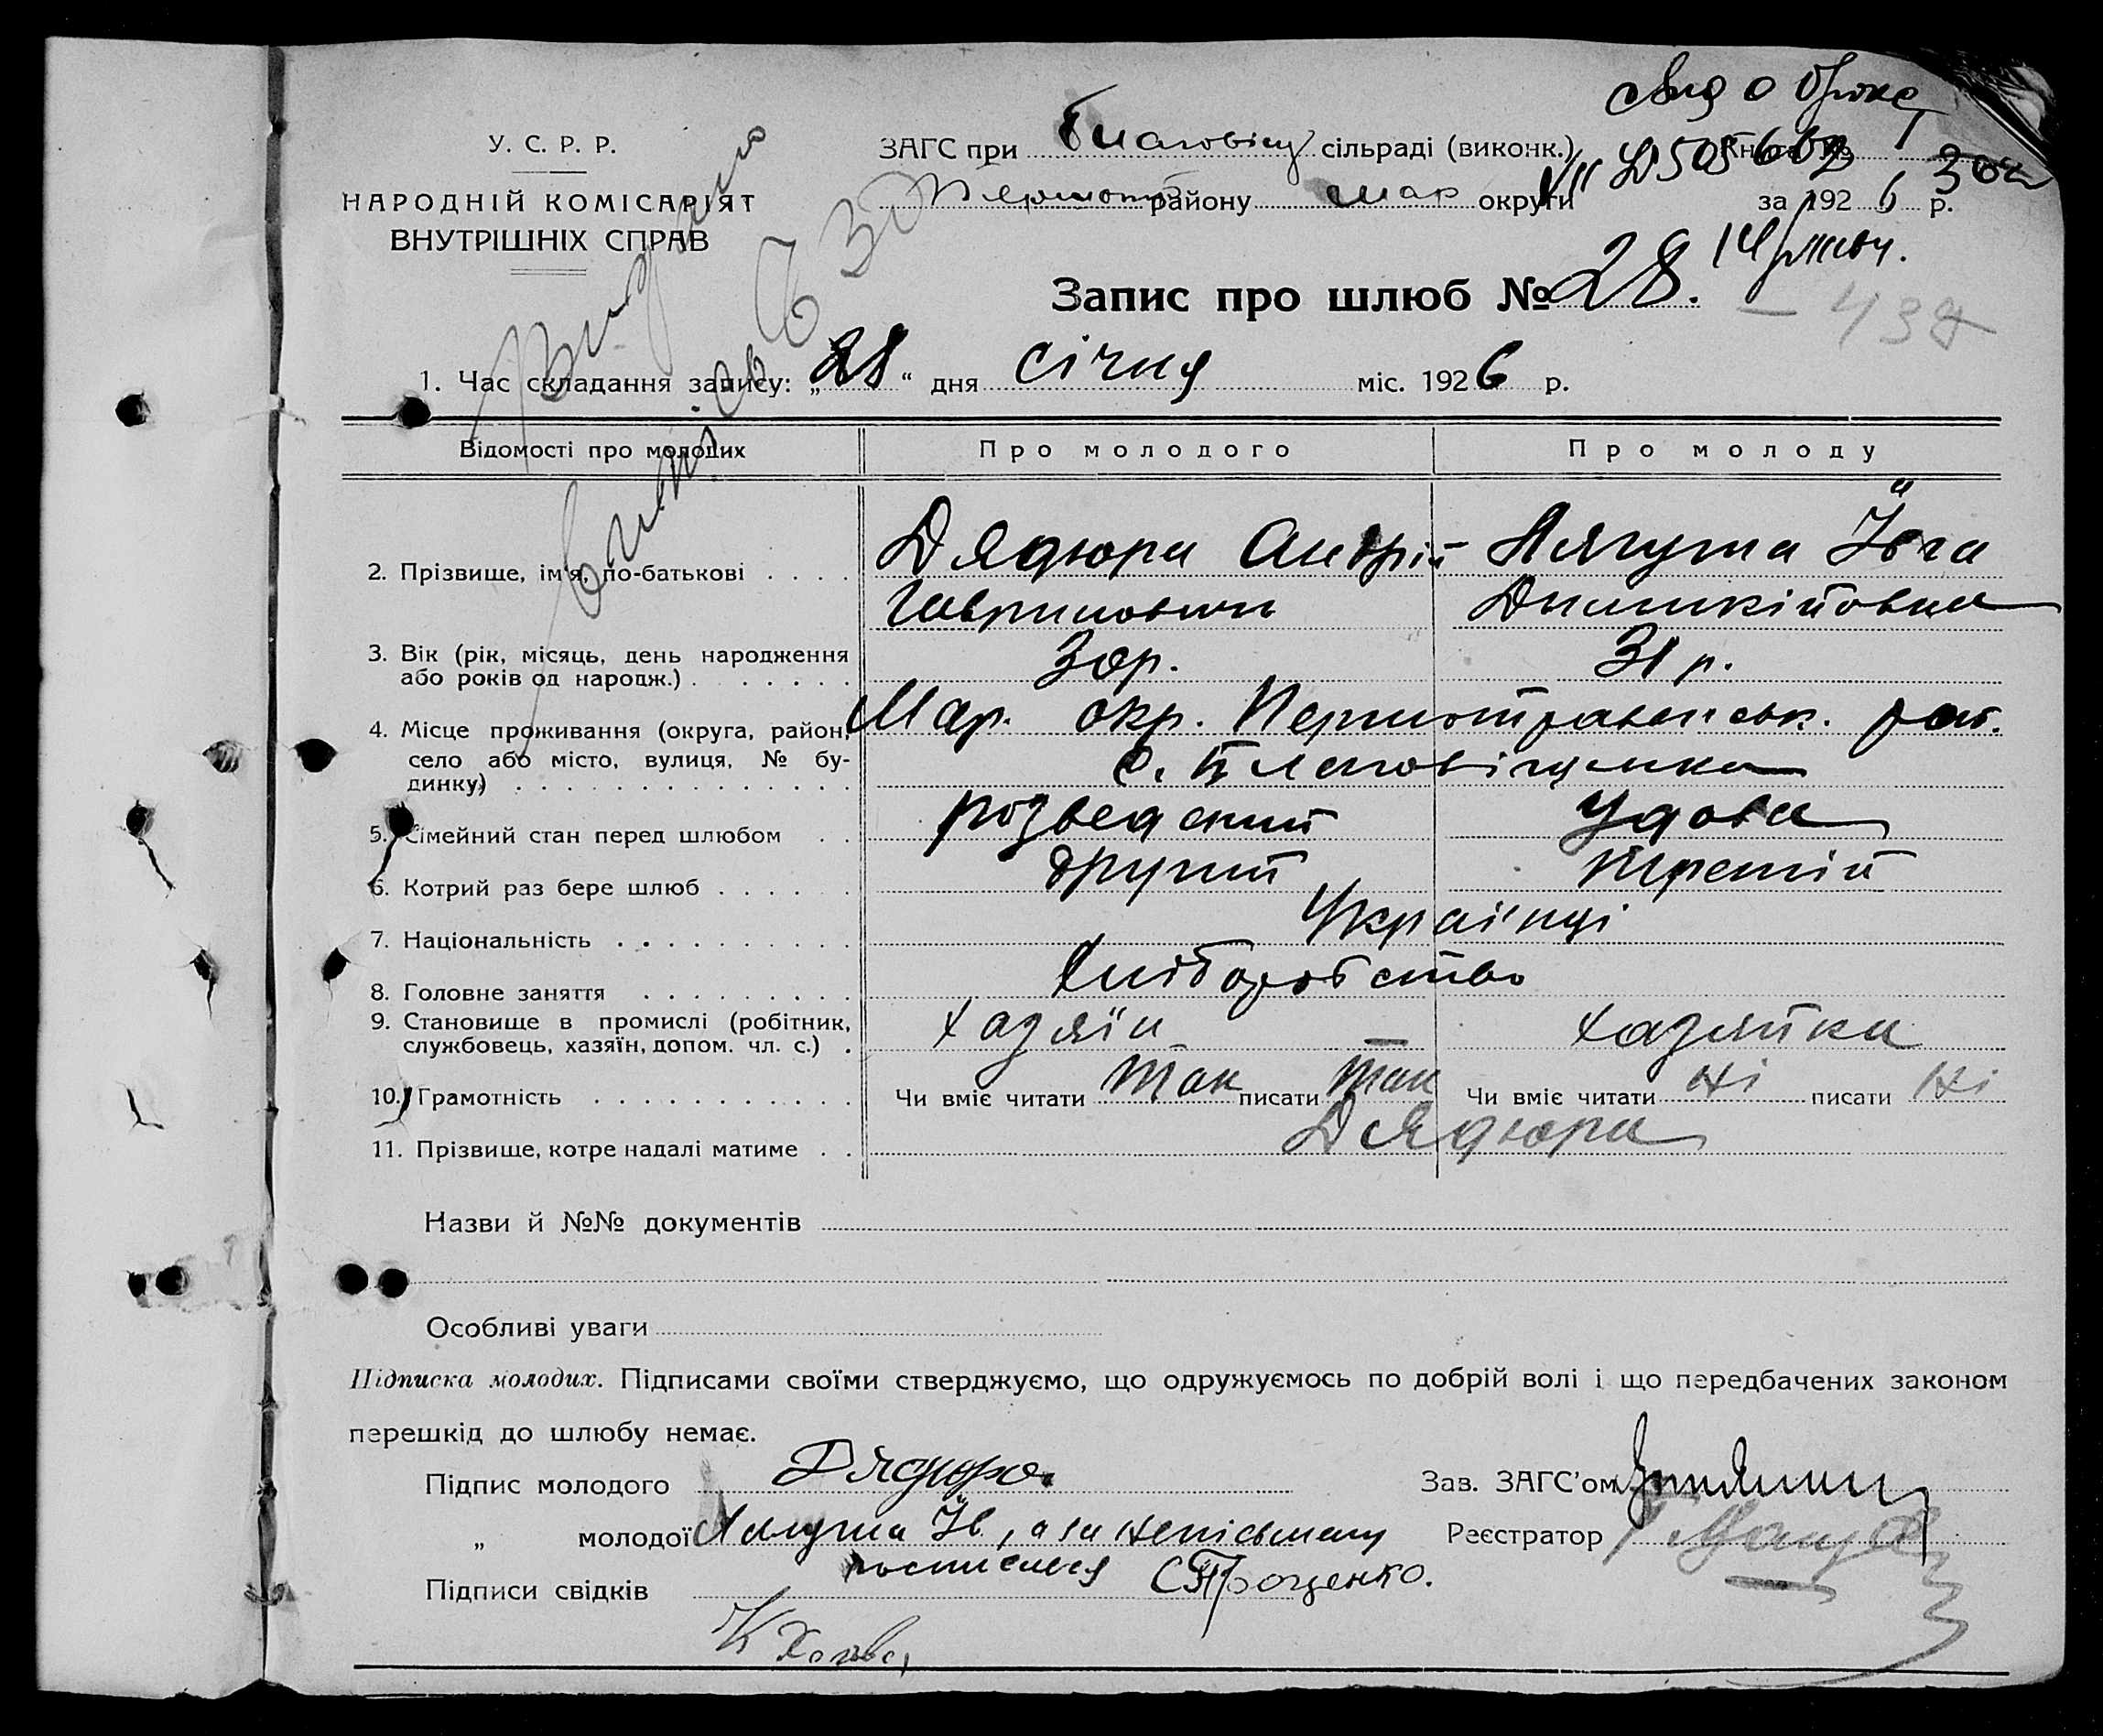 У. С. Р. Р.
НАРОДНІЙ КОМІСАРІЯТ
ВНУТРІШНІХ СПРАВ
ЗАГС при Благовіщ сільраді (виконк.)
району Мар округи за 1926 р.
Запис про шлюб № 28.
1. Час складання запису: „28“ дня січня міс. 1926 р.
Відомості про молодих Про молодого Про молоду
2. Прізвище, ім'я, по-батькові Дядюра Андрій Лягуша Ївга
Гаврилович
3. Вік (рік, місяць, день народження або років од народж.) 30р. 31 р.
4. Місце проживання (округа, район, село або місто, вулиця, № будинку) Мар. окр. Першотравенськ. рай.
с. Благовіщенка
5. Сімейний стан перед шлюбом розведений удова
6. Котрий раз бере шлюб другий третій
7. Національність Українці
8. Головне заняття Хліборобство
9. Становище в промислі (робітник, службовець, хазяїн, допом. чл. с.) хазяїн хазяйка
10. Грамотність Чи вміє читати так писати так Чи вміє читати ні писати ні
11. Прізвище, котре надалі матиме Дядюра
Назви й №№ документів
Особливі уваги
Підписка молодих. Підписами своїми стверджуємо, що одружуємось по добрій волі і що передбачених законом
перешкід до шлюбу немає.
Підпис молодого Дядюра
Зав. ЗАГС'ом
„ молодої Лягуша Їв, а за непісьмену
Реєстратор
росписався С Проценко.
Підписи свідків